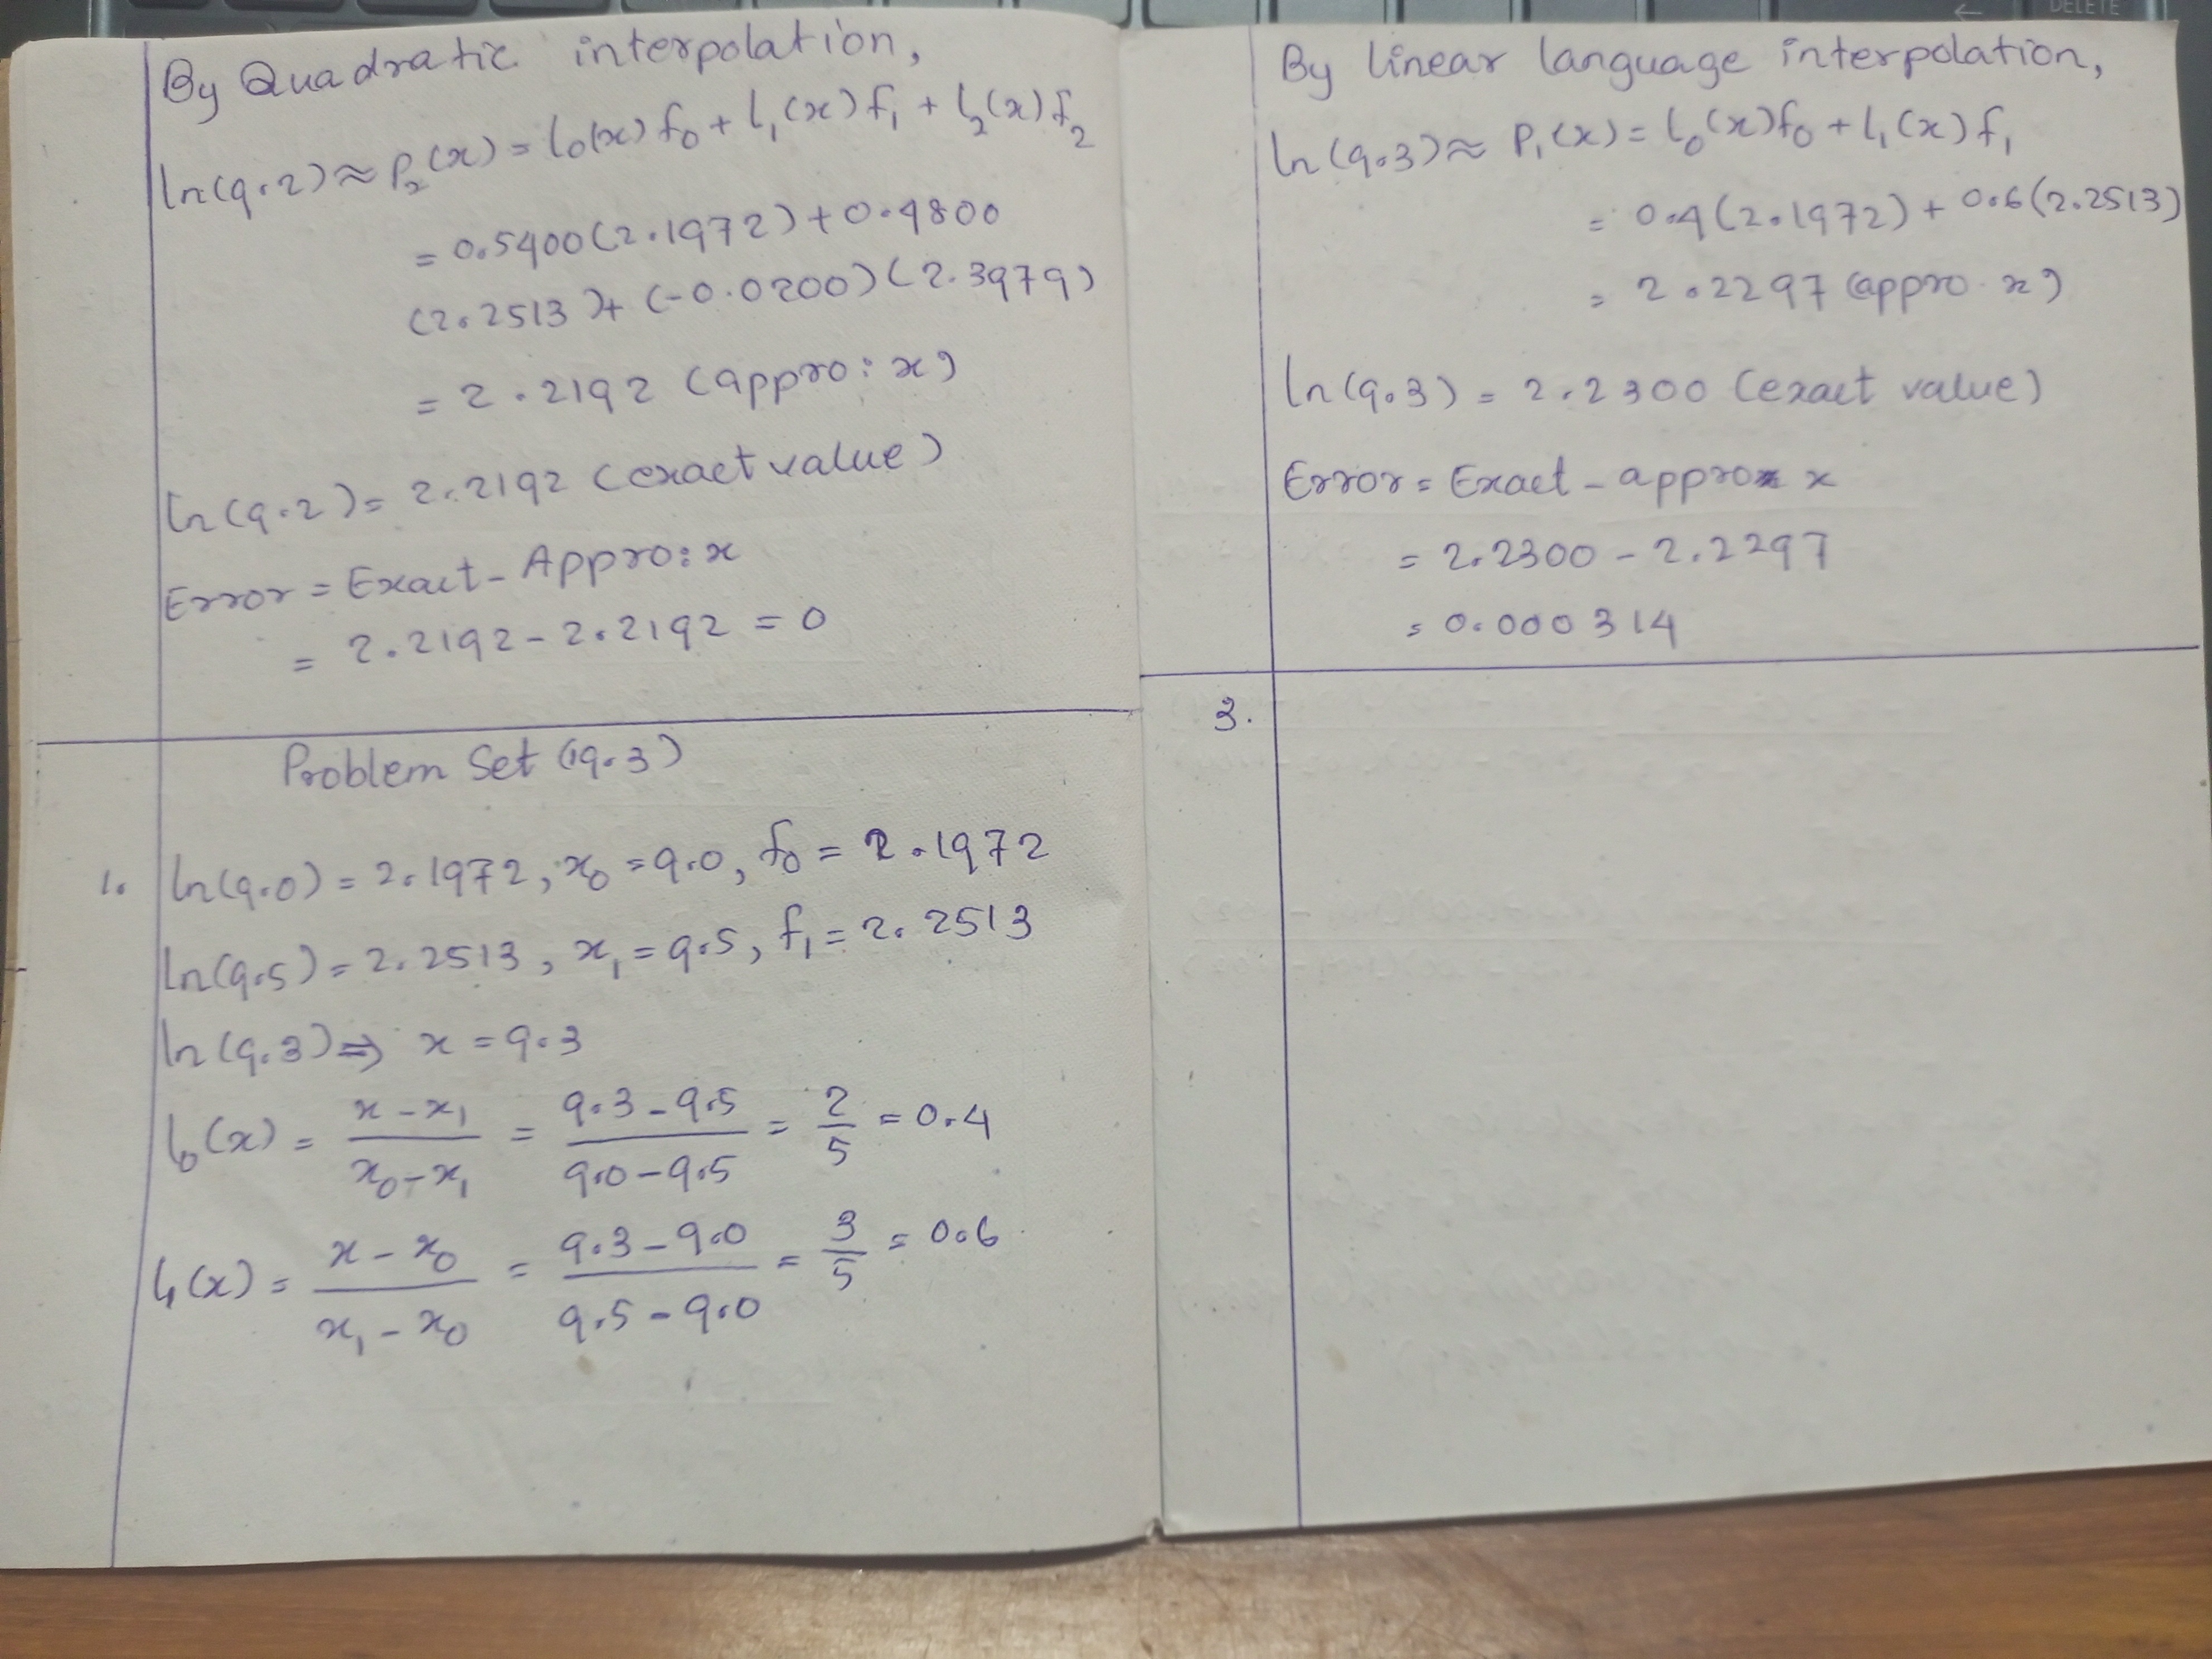 By Quadratic interpolation,
ln(9.2) ≈ p₂(x) = l₀(x) f₀ + l₁(x) f₁ + l₂(x) f₂
= 0.5400(2.1972) + 0.4800
(2.2513) + (-0.0200)(2.3979)
= 2.2192 (appro: x)
ln(9.2) = 2.2192 (exact value)
Error = Exact - Appro: x
= 2.2192 - 2.2192 = 0
Problem Set (19.3)
1. ln(9.0) = 2.1972, x₀ = 9.0, f₀ = 2.1972
ln(9.5) = 2.2513, x₁ = 9.5, f₁ = 2.2513
ln(9.3) ⇒ x = 9.3
l₀(x) = (x - x₁)/(x₀ - x₁) = (9.3 - 9.5)/(9.0 - 9.5) = 2/5 = 0.4
l₁(x) = (x - x₀)/(x₁ - x₀) = (9.3 - 9.0)/(9.5 - 9.0) = 3/5 = 0.6
By linear language interpolation,
ln(9.3) ≈ P₁(x) = l₀(x)f₀ + l₁(x) f₁
= 0.4(2.1972) + 0.6(2.2513)
= 2.2297 (appro. x)
ln(9.3) = 2.2300 (exact value)
Error = Exact - approx x
= 2.2300 - 2.2297
= 0.000314
3.
DELETE